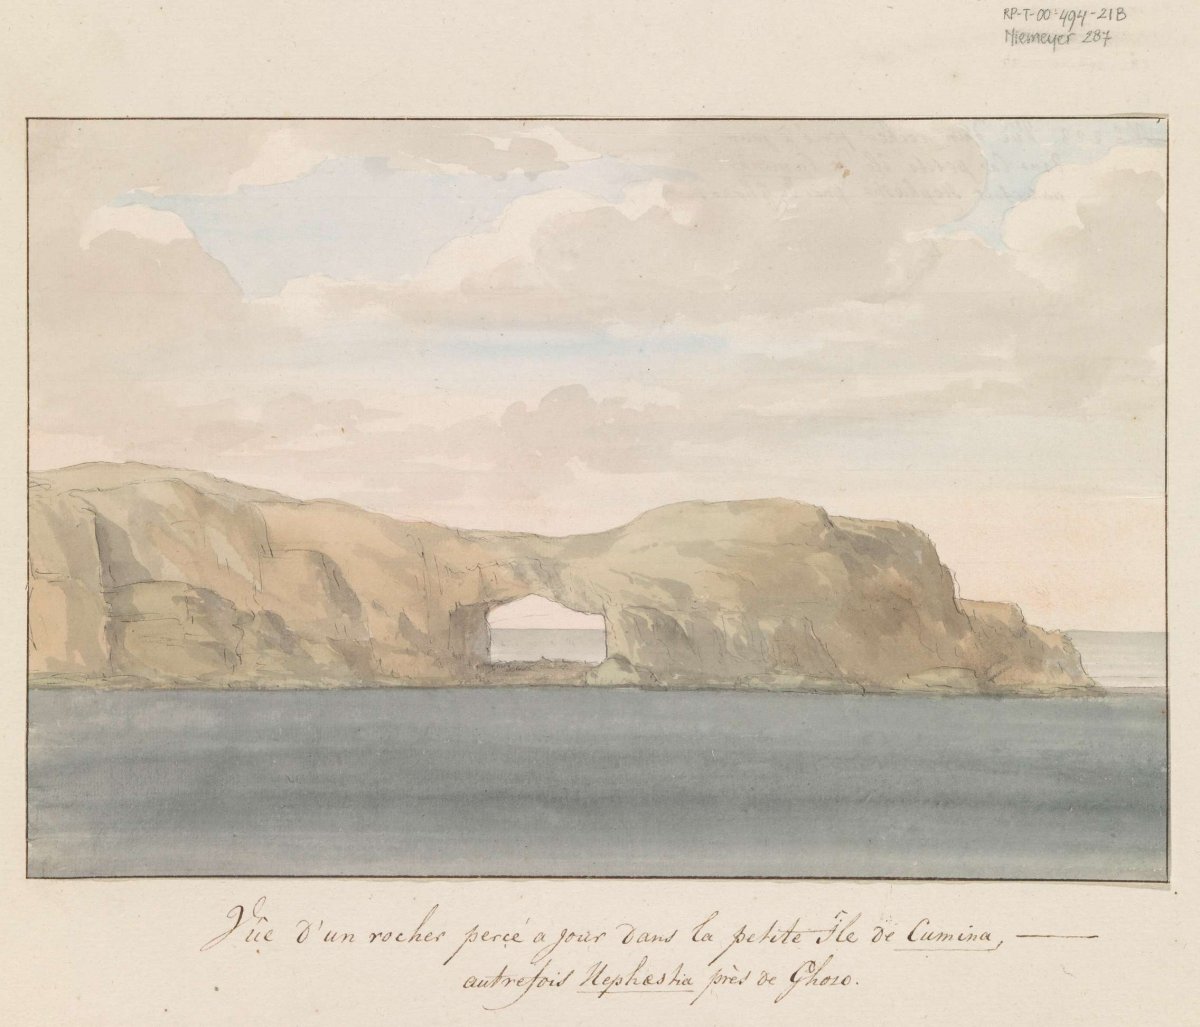 RP-T-00-494-21B
Niemeyer 287
Vûe d'un rocher percé a jour dans la petite Île de Cumina, —
autrefois Hephæstia près de Ghozo.